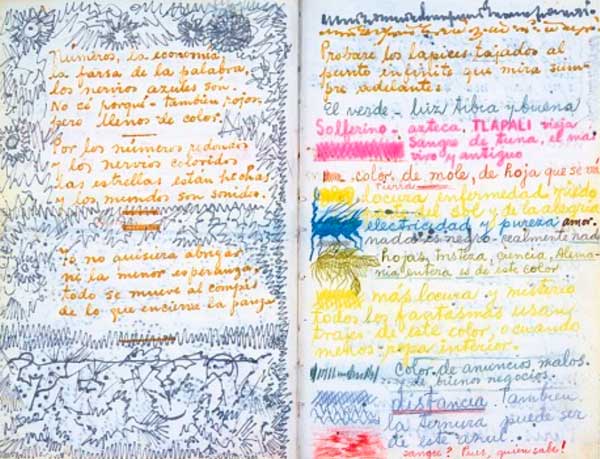 Números, la economía
la farsa de la palabra,
los nervios azules son.
No cé porqué - también rojos,
pero llenos de color.
Por los números redondos
y los nervios coloridos
las estrellas están hechas
y los mundos son sonidos.
Yo no quisiera abrigar
ni la menor esperanza,
todo se mueve al compás
de lo que encierra la panza
Probaré los lápices tajados al
punto infinito que mira siem-
pre adelante:
El verde - luz tibia y buena
Solferino - azteca. TLAPALI vieja
sangre de tuna, el mas
vivo y antiguo
color de mole, de hoja que se va
tierra
locura enfermedad miedo
parte del sol y de la alegría
electricidad y pureza amor.
nada es negro - realmente nada
hojas, tristeza, ciencia, Alema-
nia entera es de este color
más locura y misterio
todos los fantasmas usan
trajes de este color, o cuando
menos ropa interior.
color de anuncios malos
y de buenos negocios
distancia. Tambien
la ternura puede ser
de este azul.
sangre? Pues, quien sabe!